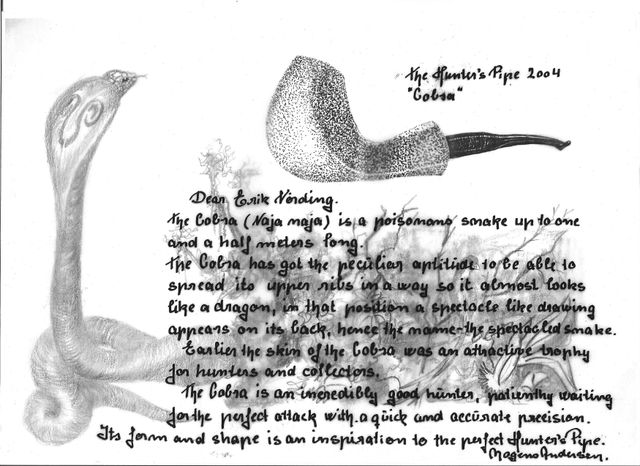 The Hunter's Pipe 2004
"Cobra"
Dear Erik Nörding.
The Cobra (Naja naja) is a poisonous snake up to one
and a half meters long.
The Cobra has got the peculiar aptitude to be able to
spread its upper ribs in a way so it almost looks
like a dragon, in that position a spectacle like drawing
appears on its back, hence the name-the spectacled snake.
Earlier the skin of the Cobra was an attractive trophy
for hunters and collectors.
The Cobra is an incredibly good hunter, patiently waiting
for the perfect attack with a quick and accurate precision.
Its form and shape is an inspiration to the perfect Hunter's Pipe.
Mogens Andersen.